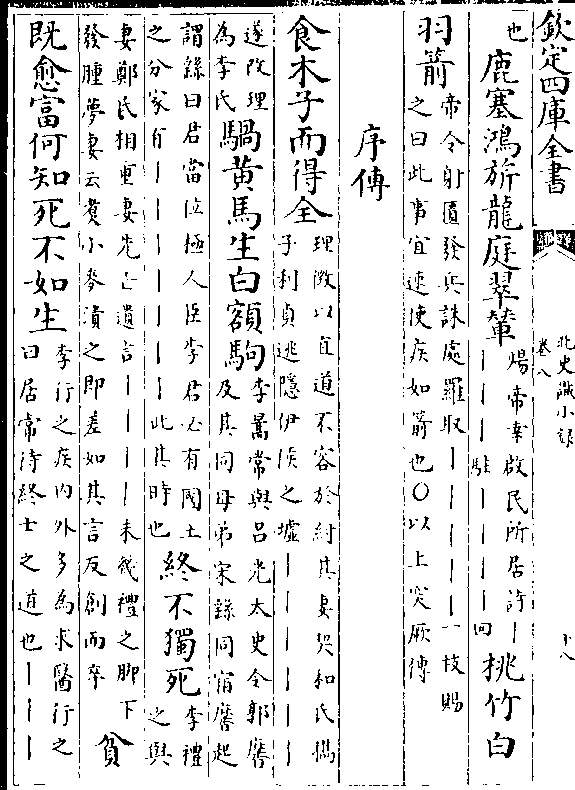 欽定四庫全書
北史識小錄
卷八
十八
也
鹿塞鴻旂龍庭翠輦
煬帝幸啟民所居詩丨
丨丨丨駐丨丨丨丨回
桃竹白
羽箭
帝令射匱發兵誅處羅取丨丨丨丨丨一枝賜
之曰此事宜速使疾如箭也○以上突厥傳
序傳
食木子而得全
理徵以直道不容於紂其妻契和氏攜
子利貞逃隱伊侯之墟丨丨丨丨丨丨
遂改理
為李氏
騧黃馬生白額駒
李暠常與呂光太史令郭黁
及其同母弟宋繇同宿黁起
謂繇曰君當位極人臣李君必有國土
之分家有丨丨丨丨丨丨丨此其時也
終不獨死
李禮
之與
妻鄭氏相重妻先亡遺言丨丨丨丨未幾禮之脚下
發腫夢妻云煮小麥漬之即差如其言反創而卒
貧
既愈富何知死不如生
李行之疾內外多為求醫行之
曰居常待終士之道也丨丨丨